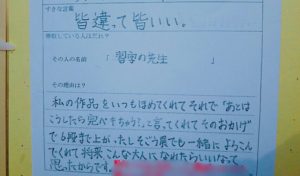 すきな言葉
皆違って皆いい。
尊敬している人はだれ？
その人の名前 「習字の先生 」
その理由は？
私の作品をいつもほめてくれてそれで「あとは
こうしたら完ペキちゃう?」と言ってくれてそのおかげ
で6段まで上がったしそごう展でも一緒によろこん
でくれて将来こんな大人になれたらいいなって
思ったからです。